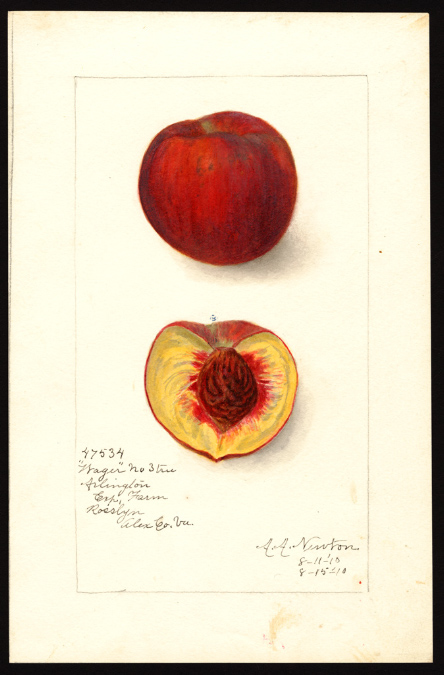 47534
"Wager" No 3 tree
Arlington
Exp. Farm
Rosslyn
Alex Co. Va.
A.A. Newton
8-11-10
8-15-10